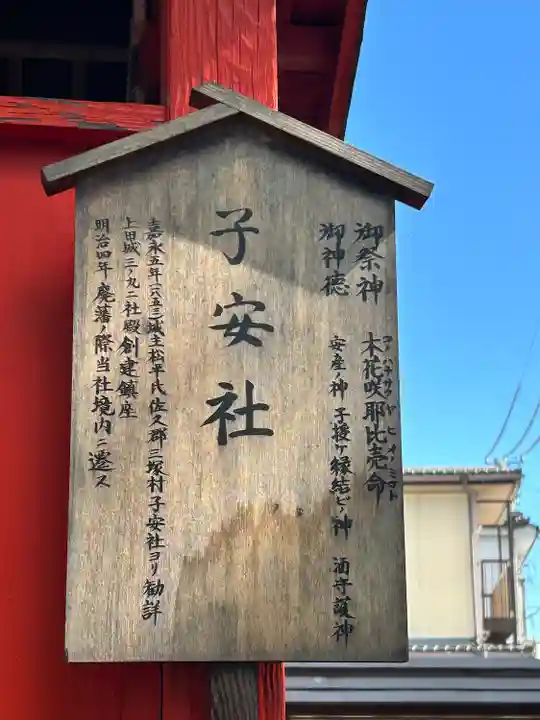 御祭神 木花咲耶比売命
コノハナサクヤヒメノミコト
御神徳 安産ノ神 子授ケ縁結ビノ神 酒守護神
子安社
嘉永五年(一八五二)城主松平氏佐久郡三塚村子安社ヨリ勧詳
上田城三ノ丸ニ社殿創建鎮座
明治四年 廃藩ノ際当社境内ニ遷ス